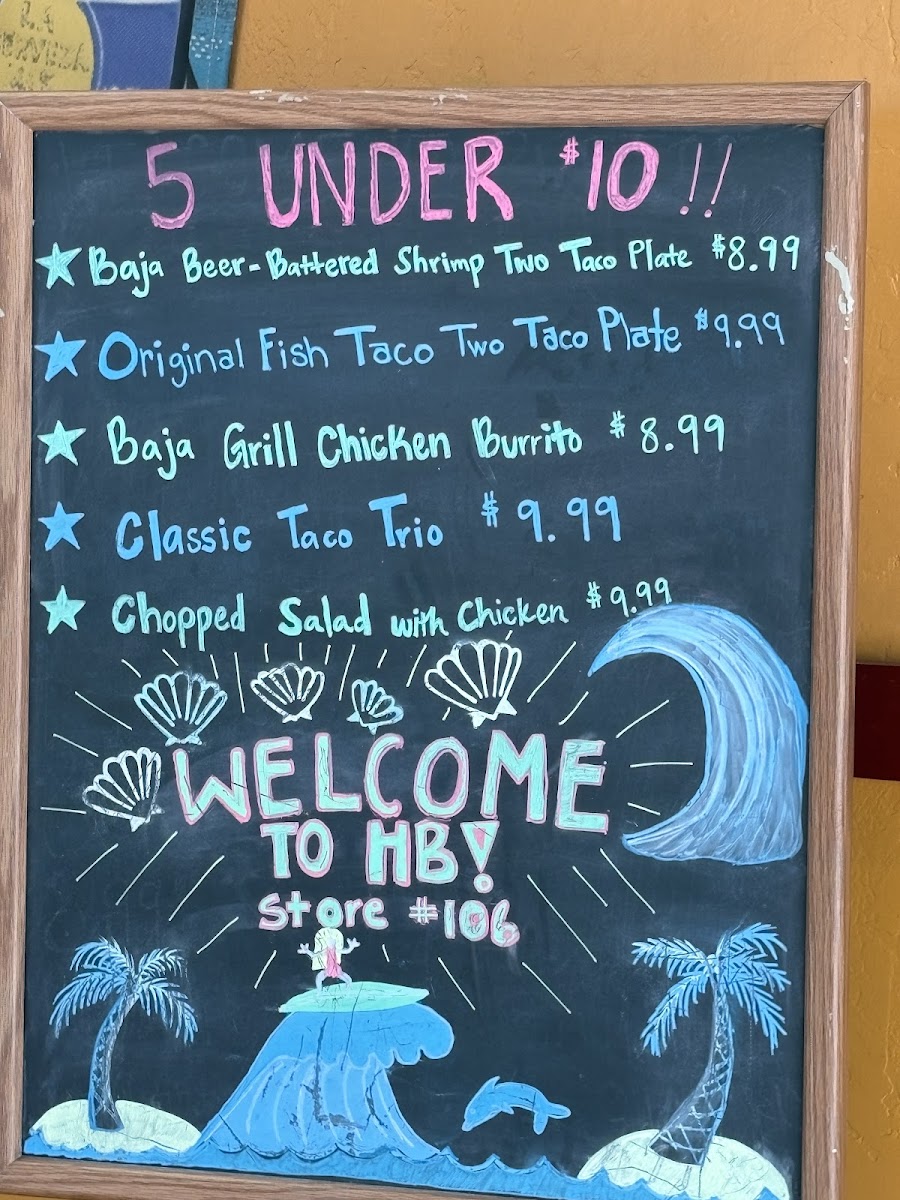 5 UNDER $10!!
Baja Beer-Battered Shrimp Two Taco Plate $8.99
Original Fish Taco Two Taco Plate $9.99
Baja Grill Chicken Burrito $8.99
Classic Taco Trio $9.99
Chopped Salad with Chicken $9.99
WELCOME
TO HB!
Store #106